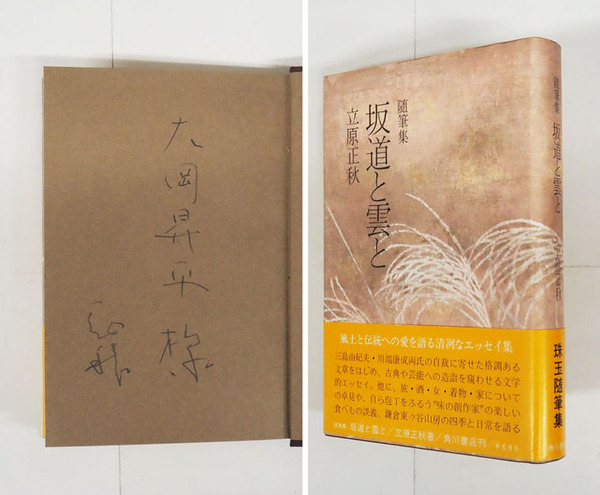 大岡昇平様
随筆集
坂道と雲と
立原正秋
随筆集
坂道と雲と
立原正秋
風土と伝統への愛を語る清冽なエッセイ集
三島由紀夫・川端康成両氏の自裁に寄せた格調ある
文章をはじめ、古典や芸能への造詣を窺わせる文学
的エッセイ、他に、旅・酒・女・着物・家について
の卓見や、自ら庖丁をふるう"味の創作家"の楽しい
食べもの談義、鎌倉東ヶ谷山房の四季と日常を語る
随筆集 坂道と雲と/立原正秋著/角川書店刊/¥690
珠玉随筆集